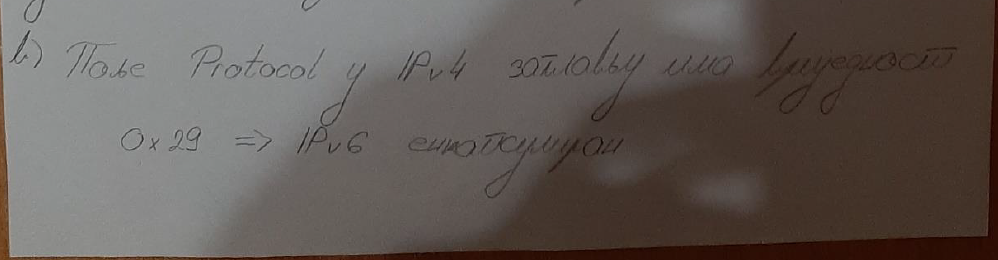 в) Поље Protocol у IPv4 заглављу има вриједност
0x29 => IPv6 енкапсулиран